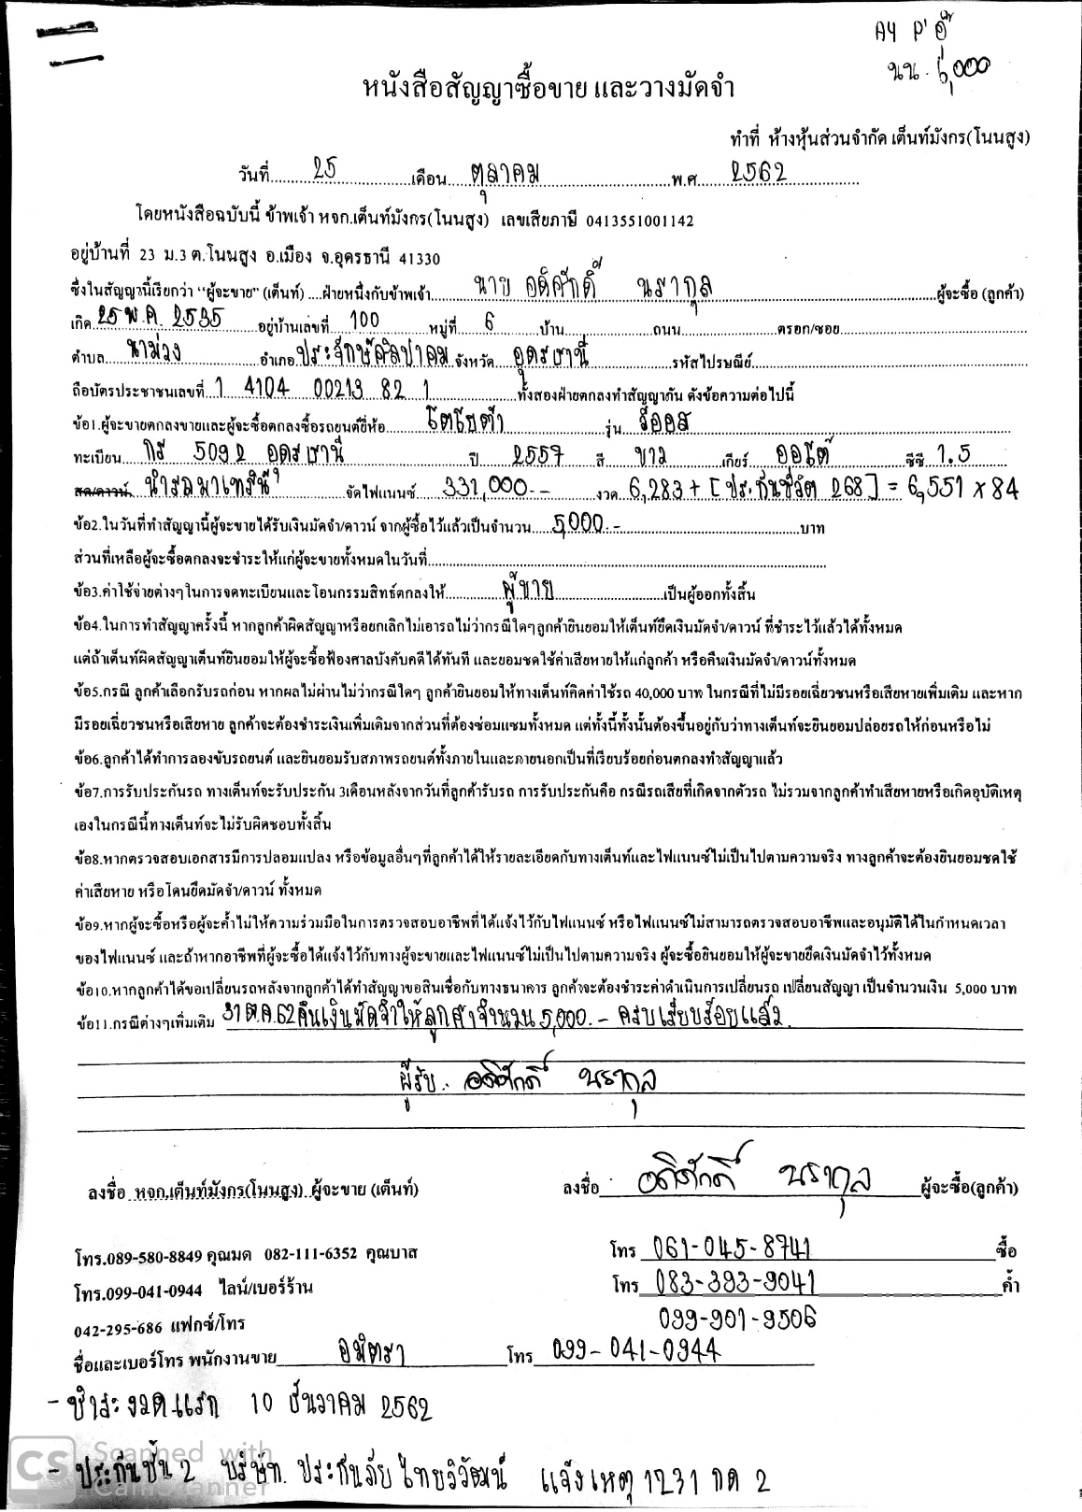 A4 P'อู๊
นน. 6,000
หนังสือสัญญาซื้อขาย และวางมัดจำ
ทำที่ ห้างหุ้นส่วนจำกัด เต็นท์มังกร(โนนสูง)
วันที่ 25 เดือน ตุลาคม พ.ศ 2562
โดยหนังสือฉบับนี้ ข้าพเจ้า หจก.เต็นท์มังกร(โนนสูง) เลขเสียภาษี 0413551001142
อยู่บ้านที่ 23 ม.3 ต.โนนสูง อ.เมือง จ.อุดรธานี 41330
ซึ่งในสัญญานี้เรียกว่า "ผู้จะขาย" (เต็นท์) ....ฝ่ายหนึ่งกับข้าพเจ้า นาย อดิศักดิ์ นรากุล ผู้จะซื้อ (ลูกค้า)
เกิด 25 พ.ค. 2535 อยู่บ้านเลขที่ 100 หมู่ที่ 6 บ้าน ถนน ตรอก/ซอย
ตำบล นาม่วง อำเภอ ประจักษ์ศิลปาคม จังหวัด อุดรธานี รหัสไปรษณีย์
ถือบัตรประชาชนเลขที่ 1 4104 00213 82 1 ทั้งสองฝ่ายตกลงทำสัญญากัน ดังข้อความต่อไปนี้
ข้อ1.ผู้จะขายตกลงขายและผู้จะซื้อตกลงซื้อรถยนต์ยี่ห้อ โตโยต้า รุ่น วีออส
ทะเบียน กร 5092 อุดรธานี ปี 2557 สี ขาว เกียร์ ออโต้ ซีซี 1.5
สด/ดาวน์ นำรถมาเทริน จัดไฟแนนซ์ 331,000.- งวด 6,283 + [ประกันชีวิต 268] = 6,551 x 84
ข้อ2.ในวันที่ทำสัญญานี้ผู้จะขายได้รับเงินมัดจำ/ดาวน์ จากผู้ซื้อไว้แล้วเป็นจำนวน 5,000.- บาท
ส่วนที่เหลือผู้จะซื้อตกลงจะชำระให้แก่ผู้จะขายทั้งหมดในวันที่
ข้อ3.ค่าใช้จ่ายต่างๆในการจดทะเบียนและโอนกรรมสิทธิ์ตกลงให้ ผู้ขาย เป็นผู้ออกทั้งสิ้น
ข้อ4.ในการทำสัญญาครั้งนี้ หากลูกค้าผิดสัญญาหรือยกเลิกไม่เอารถไม่ว่ากรณีใดๆลูกค้ายินยอมให้เต็นท์ยึดเงินมัดจำ/ดาวน์ ที่ชำระไว้แล้วได้ทั้งหมด
แต่ถ้าเต็นท์ผิดสัญญาเต็นท์ยินยอมให้ผู้จะซื้อฟ้องศาลบังคับคดีได้ทันที และยอมชดใช้ค่าเสียหายให้แก่ลูกค้า หรือคืนเงินมัดจำ/ดาวน์ทั้งหมด
ข้อ5.กรณี ลูกค้าเลือกรับรถก่อน หากผลไม่ผ่านไม่ว่ากรณีใดๆ ลูกค้ายินยอมให้ทางเต็นท์คิดค่าใช้รถ 40,000 บาท ในกรณีที่ไม่มีรอยเฉี่ยวชนหรือเสียหายเพิ่มเติม และหาก
มีรอยเฉี่ยวชนหรือเสียหาย ลูกค้าจะต้องชำระเงินเพิ่มเติมจากส่วนที่ต้องซ่อมแซมทั้งหมด แต่ทั้งนี้ทั้งนั้นต้องขึ้นอยู่กับว่าทางเต็นท์จะยินยอมปล่อยรถให้ก่อนหรือไม่
ข้อ6.ลูกค้าได้ทำการลองขับรถยนต์ และยินยอมรับสภาพรถยนต์ทั้งภายในและภายนอกเป็นที่เรียบร้อยก่อนตกลงทำสัญญาแล้ว
ข้อ7.การรับประกันรถ ทางเต็นท์จะรับประกัน 3เดือนหลังจากวันที่ลูกค้ารับรถ การรับประกันคือ กรณีรถเสียที่เกิดจากตัวรถ ไม่รวมจากลูกค้าทำเสียหายหรือเกิดอุบัติเหตุ
เองในกรณีนี้ทางเต็นท์จะไม่รับผิดชอบทั้งสิ้น
ข้อ8.หากตรวจสอบเอกสารมีการปลอมแปลง หรือข้อมูลอื่นๆที่ลูกค้าได้ให้รายละเอียดกับทางเต็นท์และไฟแนนซ์ไม่เป็นไปตามความจริง ทางลูกค้าจะต้องยินยอมชดใช้
ค่าเสียหาย หรือโดนยึดมัดจำ/ดาวน์ ทั้งหมด
ข้อ9.หากผู้จะซื้อหรือผู้จะค้ำไม่ให้ความร่วมมือในการตรวจสอบอาชีพที่ได้แจ้งไว้กับไฟแนนซ์ หรือไฟแนนซ์ไม่สามารถตรวจสอบอาชีพและอนุมัติได้ในกำหนดเวลา
ของไฟแนนซ์ และถ้าหากอาชีพที่ผู้จะซื้อได้แจ้งไว้กับทางผู้จะขายและไฟแนนซ์ไม่เป็นไปตามความจริง ผู้จะซื้อยินยอมให้ผู้จะขายยึดเงินมัดจำไว้ทั้งหมด
ข้อ10.หากลูกค้าได้ขอเปลี่ยนรถหลังจากลูกค้าได้ทำสัญญาขอสินเชื่อกับทางธนาคาร ลูกค้าจะต้องชำระค่าดำเนินการเปลี่ยนรถ เปลี่ยนสัญญา เป็นจำนวนเงิน 5,000 บาท
ข้อ11.กรณีต่างๆเพิ่มเติม 31 ต.ค.62 คืนเงินมัดจำให้ลูกค้าจำนวน 5,000.- ครบเรียบร้อยแล้ว
ผู้รับ. อดิศักดิ์ นรากุล
ลงชื่อ หจก.เต็นท์มังกร(โนนสูง) ผู้จะขาย (เต็นท์) ลงชื่อ อดิศักดิ์ นรากุล ผู้จะซื้อ(ลูกค้า)
โทร.089-580-8849 คุณมด 082-111-6352 คุณบาส โทร 061-045-8741 ซื้อ
โทร.099-041-0944 ไลน์/เบอร์ร้าน โทร 083-393-9041 ค้ำ
042-295-686 แฟกซ์/โทร 099-901-9506
ชื่อและเบอร์โทร พนักงานขาย อมิตรา โทร 099-041-0944
- ชำระงวดแรก 10 ธันวาคม 2562
- ประกันชั้น 2 บริษัท. ประกันภัย ไทยวิวัฒน์ แจ้งเหตุ 1231 กด 2
CS Scanned with
CamScanner